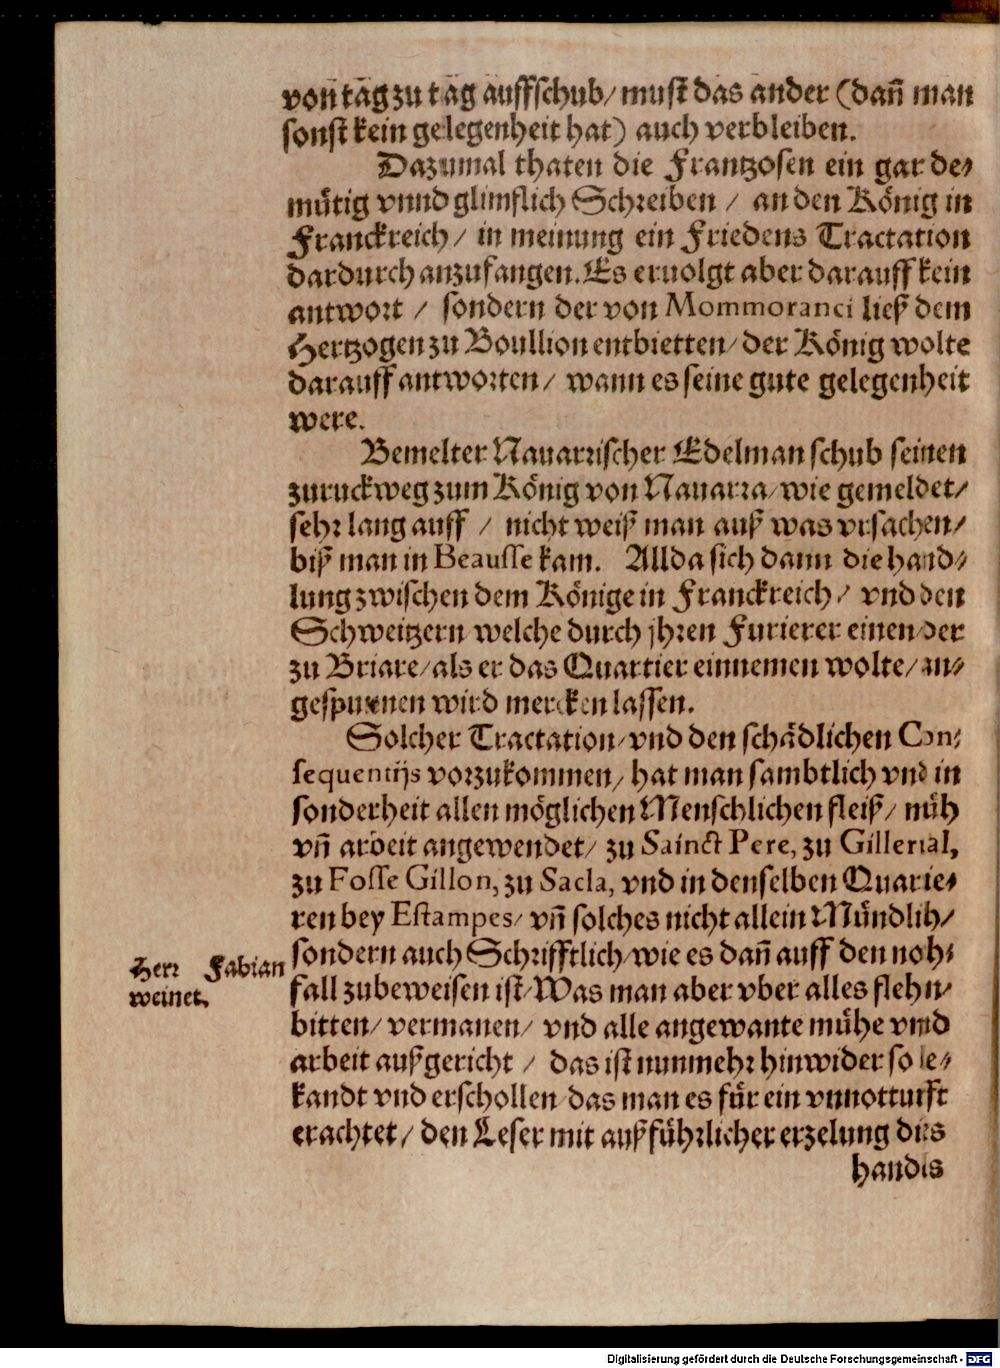 von tag zu tag auffschub/ must das ander (dañ man
sonst kein gelegenheit hat) auch verbleiben.
Dazumal thaten die Frantzosen ein gar de⸗
mütig vnnd glimflich Schreiben / an den König in
Franckreich/ in meinung ein Friedens Tractation
dardurch anzufangen. Es eruolgt aber darauff kein
antwort / sondern der von Mommoranci ließ dem
Hertzogen zu Boullion entbietten/ der König wolte
darauff antworten/ wann es seine gute gelegenheit
were.
Bemelter Nauarrischer Edelman schub seinen
zuruckweg zum König von Nauarra/ wie gemeldet/
sehr lang auff / nicht weiß man auß was vrsachen/
biß man in Beausse kam. Allda sich dann die hand⸗
lung zwischen dem Könige in Franckreich/ vnd den
Schweitzern welche durch jhren Furierer einen der
zu Briare/ als er das Quartier einnemen wolte/ an⸗
gespunnen wird mercken lassen.
Solcher Tractation/ vnd den schädlichen Con⸗
sequentijs vorzukommen/ hat man sambtlich vnd in
sonderheit allen möglichen Menschlichen fleiß/ müh
vñ arbeit angewendet/ zu Sainct Pere, zu Gillerual,
zu Fosse Gillon, zu Sacla, vnd in denselben Quarie⸗
ren bey Estampes/ vñ solches nicht allein Mündlih/
sondern auch Schrifftlich/ wie es dañ auff den noh⸗
fall zubeweisen ist/ Was man aber vber alles flehn/
bitten/ vermanen/ vnd alle angewante mühe vnnd
arbeit außgericht / das ist nunmehr hinwider so be⸗
kandt vnd erschollen das man es für ein vnnotturfft
erachtet/ den Leser mit außführlicher erzelung des
handls
Herr Fabian
weinet.
Digitalisierung gefördert durch die Deutsche Forschungsgemeinschaft - DFG